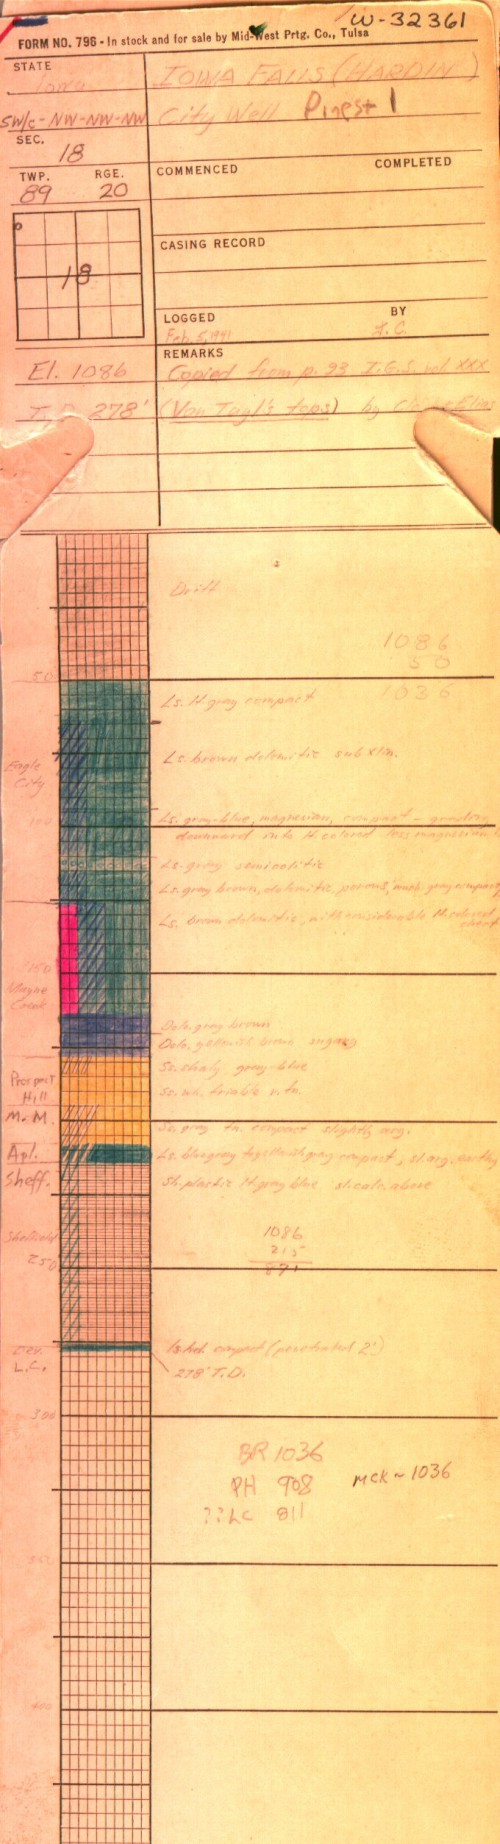 W-32361
FORM NO. 796 - In stock and for sale by Mid-West Prtg. Co., Tulsa
STATE
Iowa
IOWA FALLS (HARDIN)
SW/c-NW-NW-NW
City Well
SEC.
18
TWP. RGE.
89 20
COMMENCED COMPLETED
18
CASING RECORD
LOGGED BY
Feb. 5, 1941
REMARKS
El. 1086
Copied from p. 93 I.G.S. vol XXX
T.D. 278'
(Van Tuyl's tops) by
Drift
1086
50
1036
50
Ls. lt gray compact
Ls. brown dolomitic sub xln.
Eagle
City
100
Ls. gray-blue, magnesian, compact - grading
downward into lt. colored less magnesian
Ls. gray semioolitic
Ls. gray brown, dolomitic, porous,
Ls. brown dolomitic, with considerable lt colored
chert
150
Mayne
Creek
Dolo. gray brown
Dolo. yellowish brown sugary
Prospect
Hill
Ss. shaly, gray-blue
Ss. wh. friable
M.M.
Ss. gray fn. compact slightly arg.
Apl.
Ls. bluegray to yellowish gray compact, sl. arg. earthy
Sheff.
Sh. plastic lt. gray blue sl. calc. above
Sheffield
1086
215
871
250
L.C.
compact (penetrated 2')
278' T.D.
300
BR 1036
PH 908
MCK ~ 1036
??LC 811
350
400